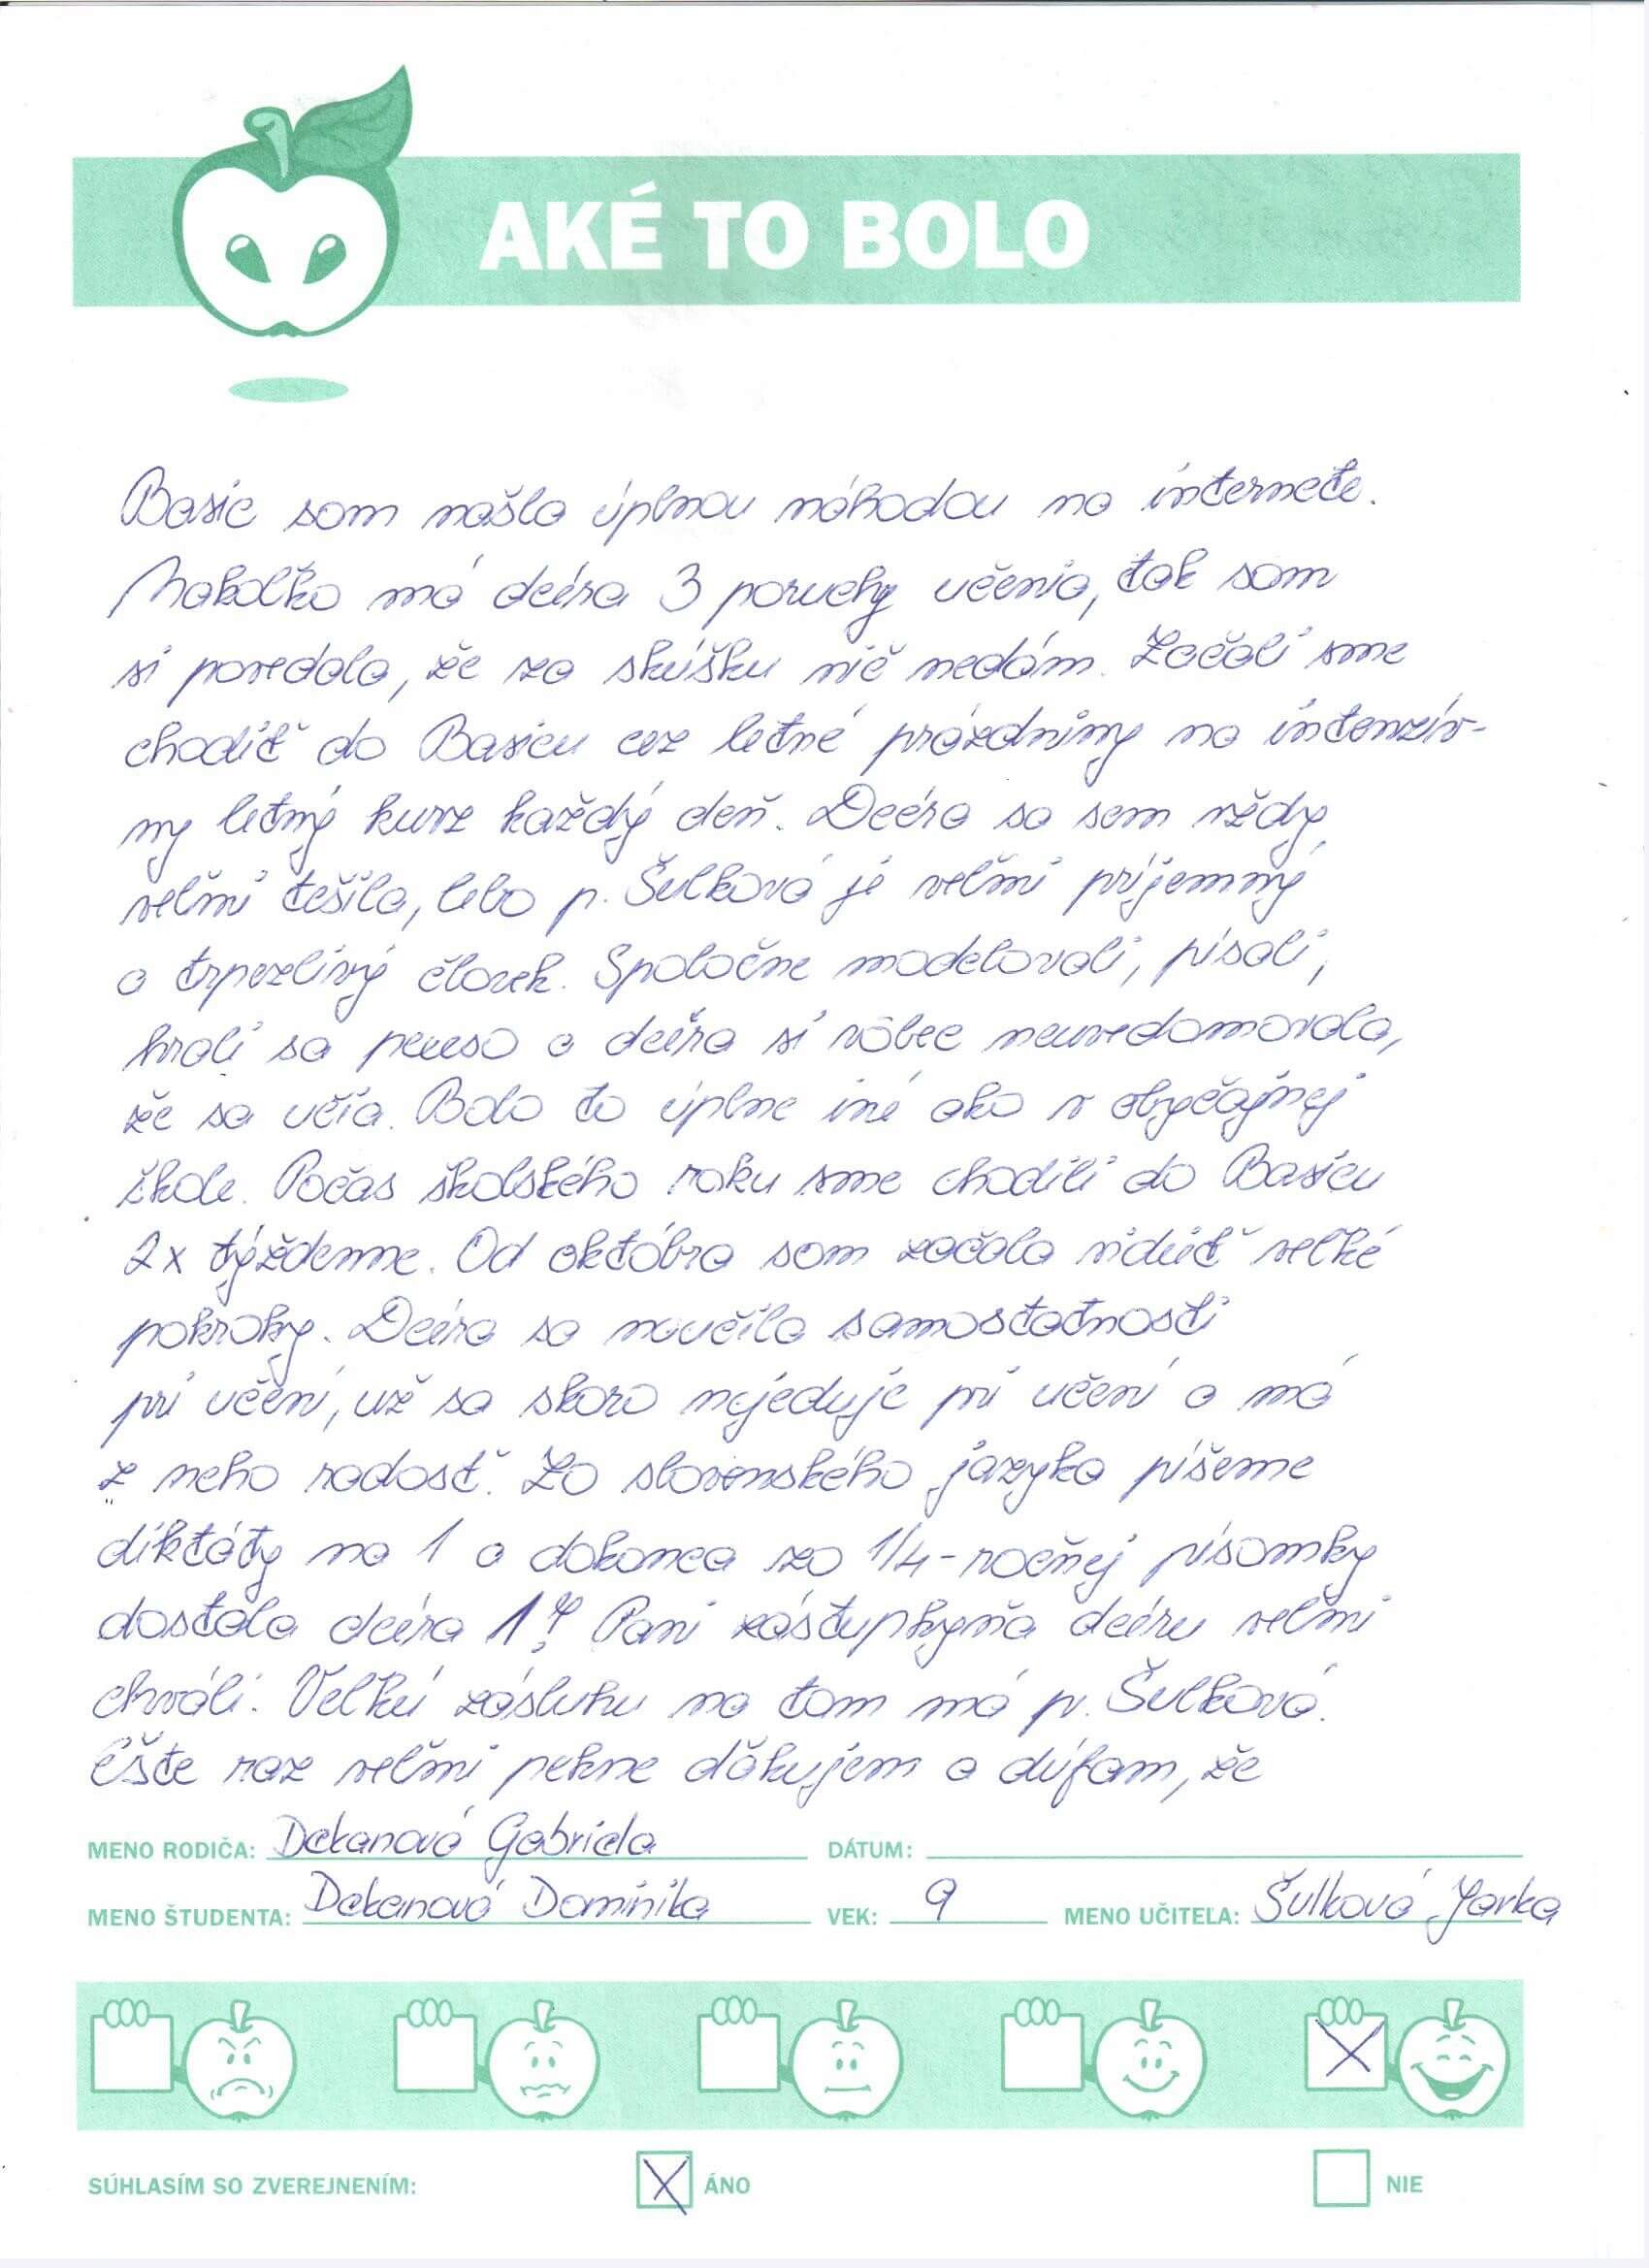 AKÉ TO BOLO
Basic som našla úplnou náhodou na internete.
Nakoľko má dcéra 3 poruchy učenia, tak som
si povedala, že za skúšku nič nedám. Začali sme
chodiť do Basicu cez letné prázdniny na intenzív-
ny letný kurz každý deň. Dcéra sa sem vždy
veľmi tešila, lebo p. Šulková je veľmi príjemný
a trpezlivý človek. Spoločne modelovali, písali,
hrali sa pexeso a dcéra si vôbec neuvedomovala,
že sa učia. Bolo to úplne iné ako v obyčajnej
škole. Počas školského roku sme chodili do Basicu
2x týždenne. Od októbra som začala vidieť veľké
pokroky. Dcéra sa naučila samostatnosti
pri učení, už sa skoro nejeduje pri učení a má
z neho radosť. Zo slovenského jazyka píšeme
diktáty na 1 a dokonca zo 1/4-ročnej písomky
dostala dcéra 1!! Pani zástupkyňa dcéru veľmi
chváli. Veľkú zásluhu na tom má p. Šulková.
Ešte raz veľmi pekne ďakujem a dúfam, že
MENO RODIČA: Dekanová Gabriela DÁTUM:
MENO ŠTUDENTA: Dekanová Dominika VEK: 9 MENO UČITEĽA: Šulková Jarka
SÚHLASÍM SO ZVEREJNENÍM: X ÁNO NIE